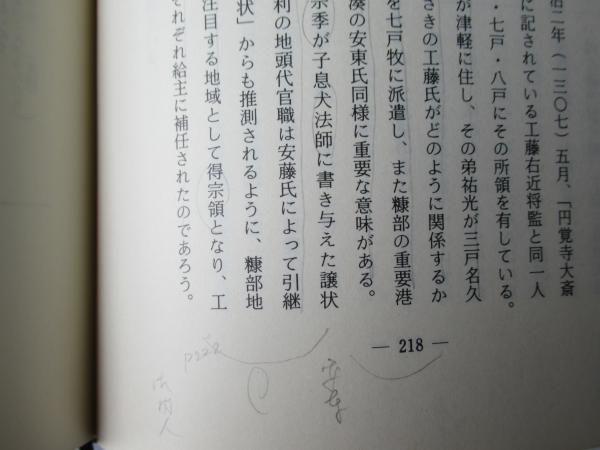 治二年（一三〇七）五月、「円覚寺大斎
に記されている工藤右近将監と同一人
・七戸・八戸にその所領を有している。
が津軽に住し、その弟祐光が三戸名久
さきの工藤氏がどのように関係するか
を七戸牧に派遣し、また糠部の重要港
湊の安東氏同様に重要な意味がある。
宗季が子息犬法師に書き与えた譲状
利の地頭代官職は安藤氏によって引継
状」からも推測されるように、糠部地
注目する地域として得宗領となり、工
それぞれ給主に補任されたのであろう。
— 218 —
P222